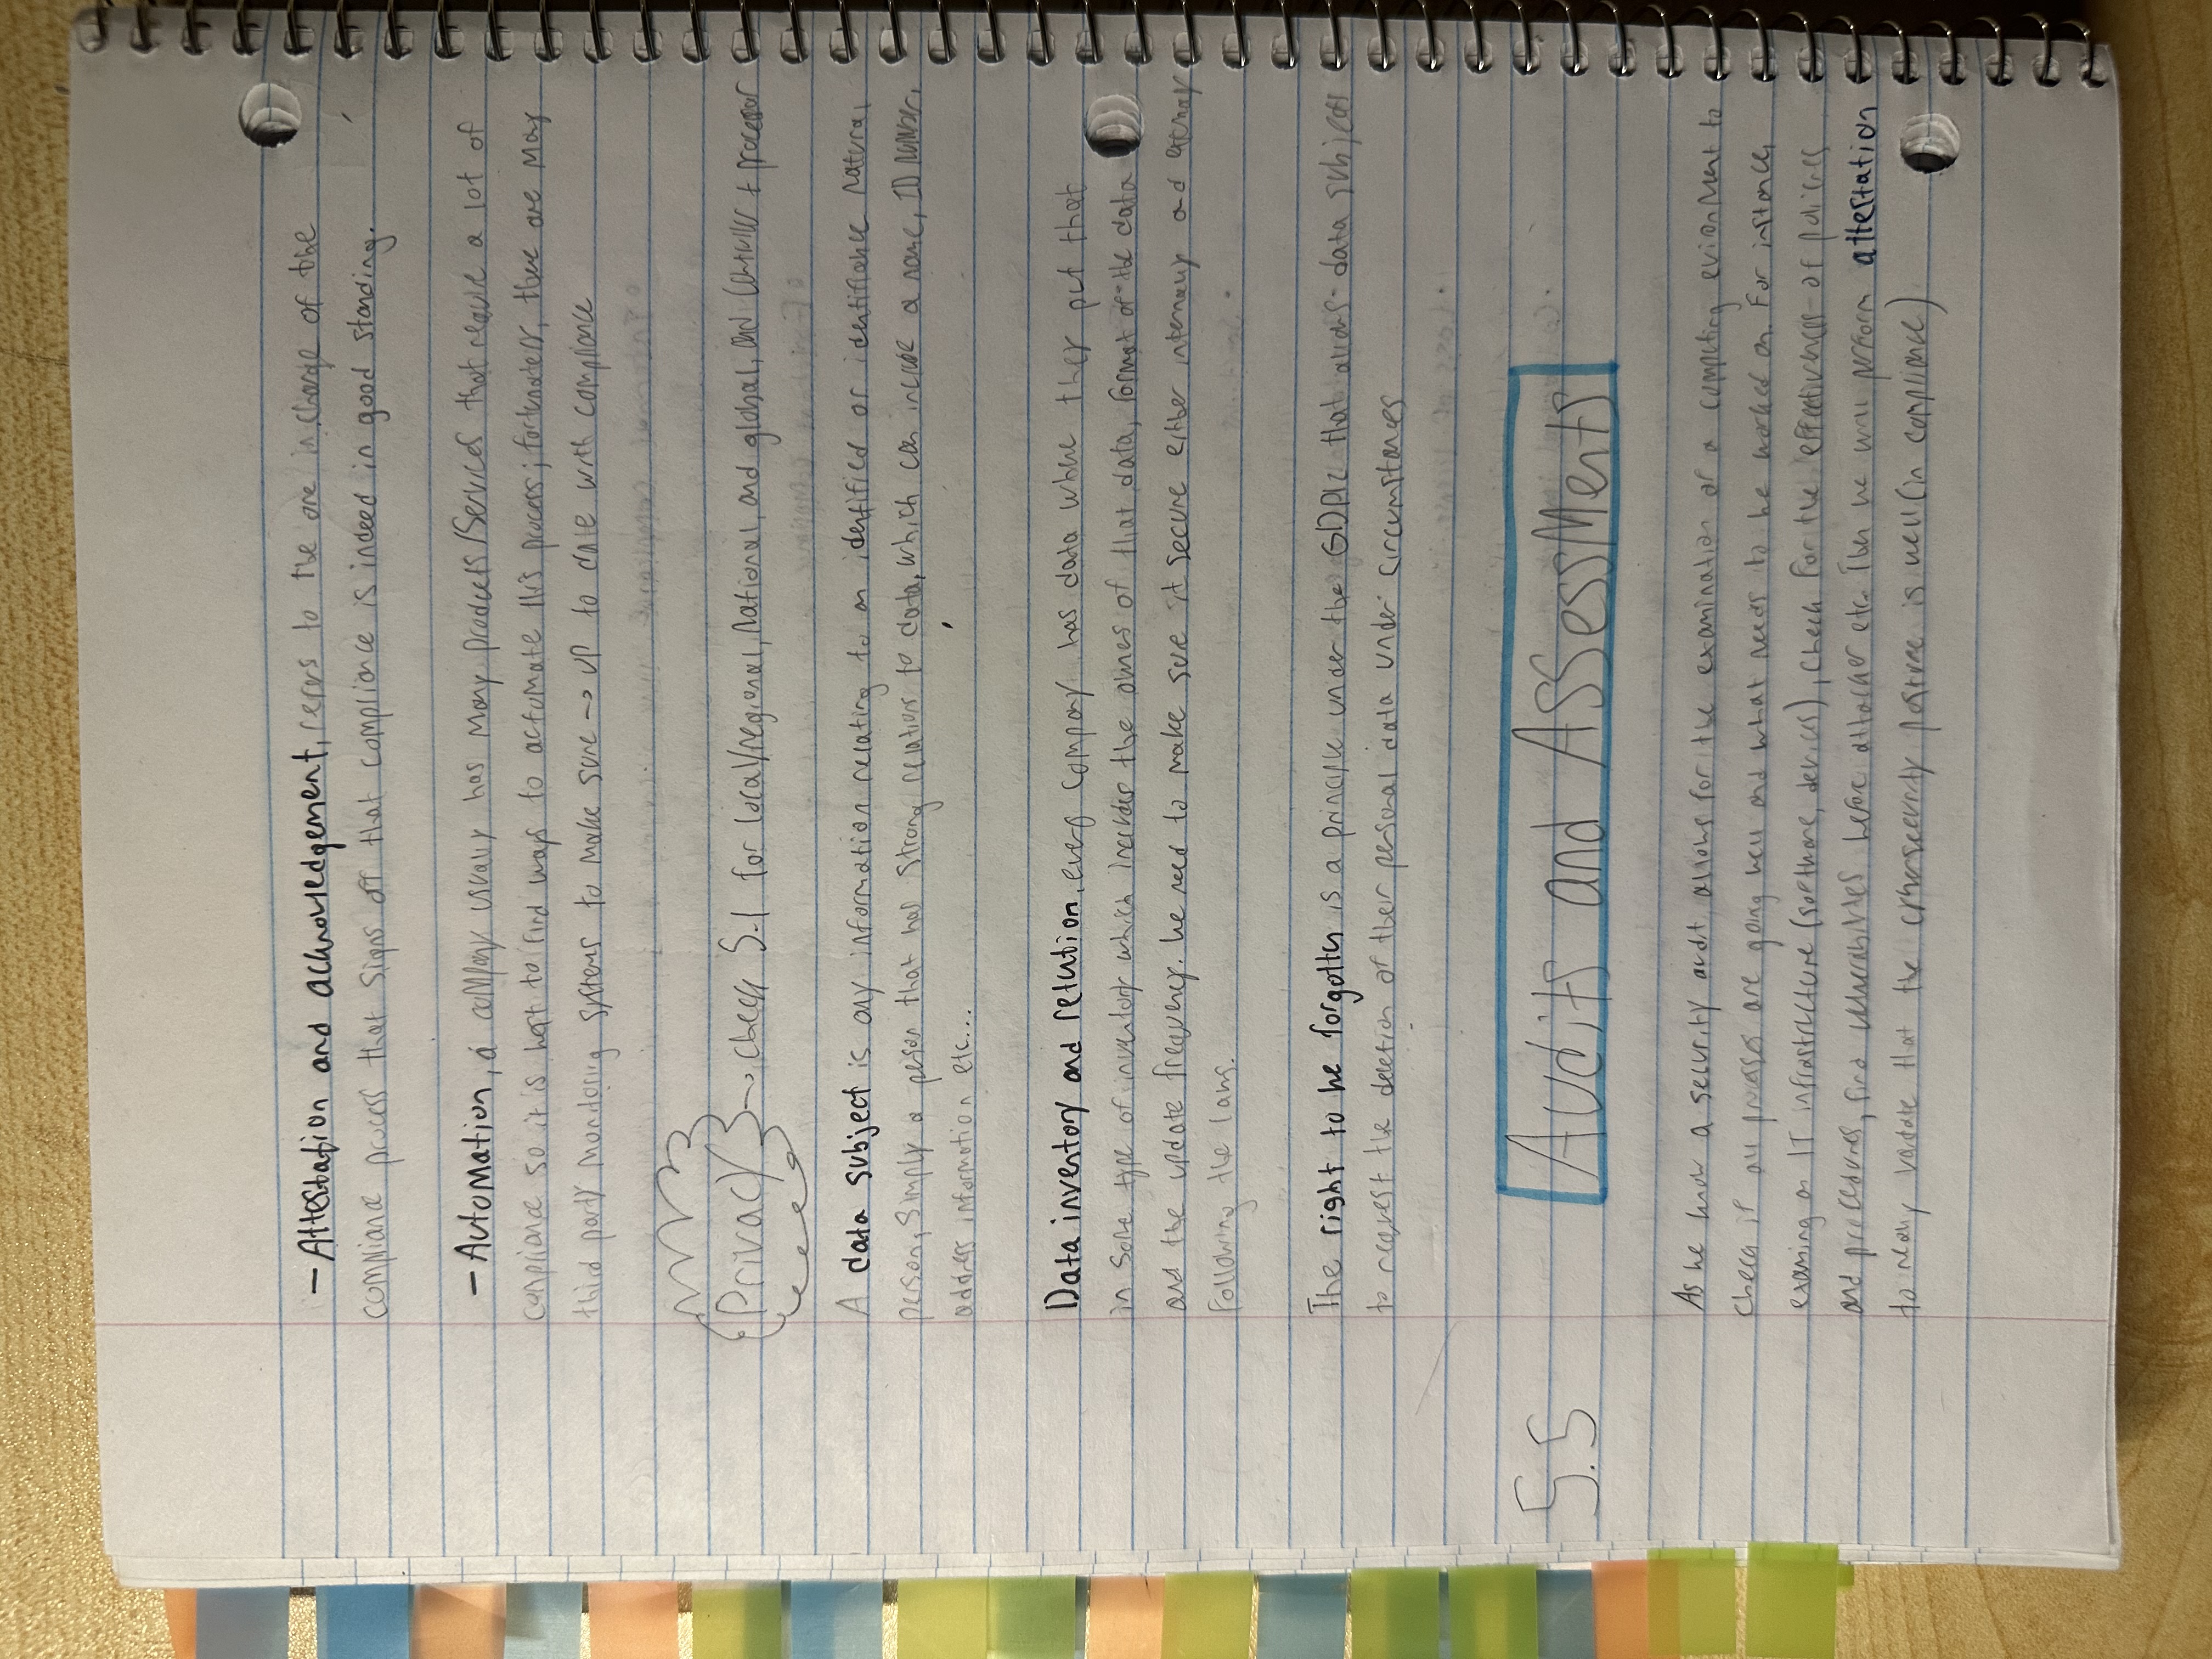 - Attestation and acknowledgement, refers to the one in charge of the
compliance process that signs off that compliance is indeed in good standing.
- Automation, a company usually has many products/services that require a lot of
compliance so it is best to find ways to actomate this process; fortunately, there are many
third party monitoring systems to make sure → up to date with compliance
Privacy → check 5.1 for local/regional, national, and global, and controller + processor
A data subject is any information relating to an identified or identifiable natural
person, simply a person that has strong relations to data, which can include a name, ID number,
address information etc...
Data inventory and retution, every company has data where they put that
in some type of inventory which includes the owners of that data, format of the data
and the update frequency. We need to make sure it secure either internally and
following the laws.
The right to be forgotten is a principle under the GDPR that allows data subjects
to request the deletion of their personal data under circumstances
5.5 Audits and Assessments
As we know a security audit, allows for the examination of a computing evironment to
check if all processes are going well and what needs to be worked on. For instance,
examing an IT infrastructure (software, devices), check for the effectiveness of policies
and procedures, find vulnerabilities before attacker etc. Then we will perform attestation
to really validate that the cybersecurity posture is well (in compliance)